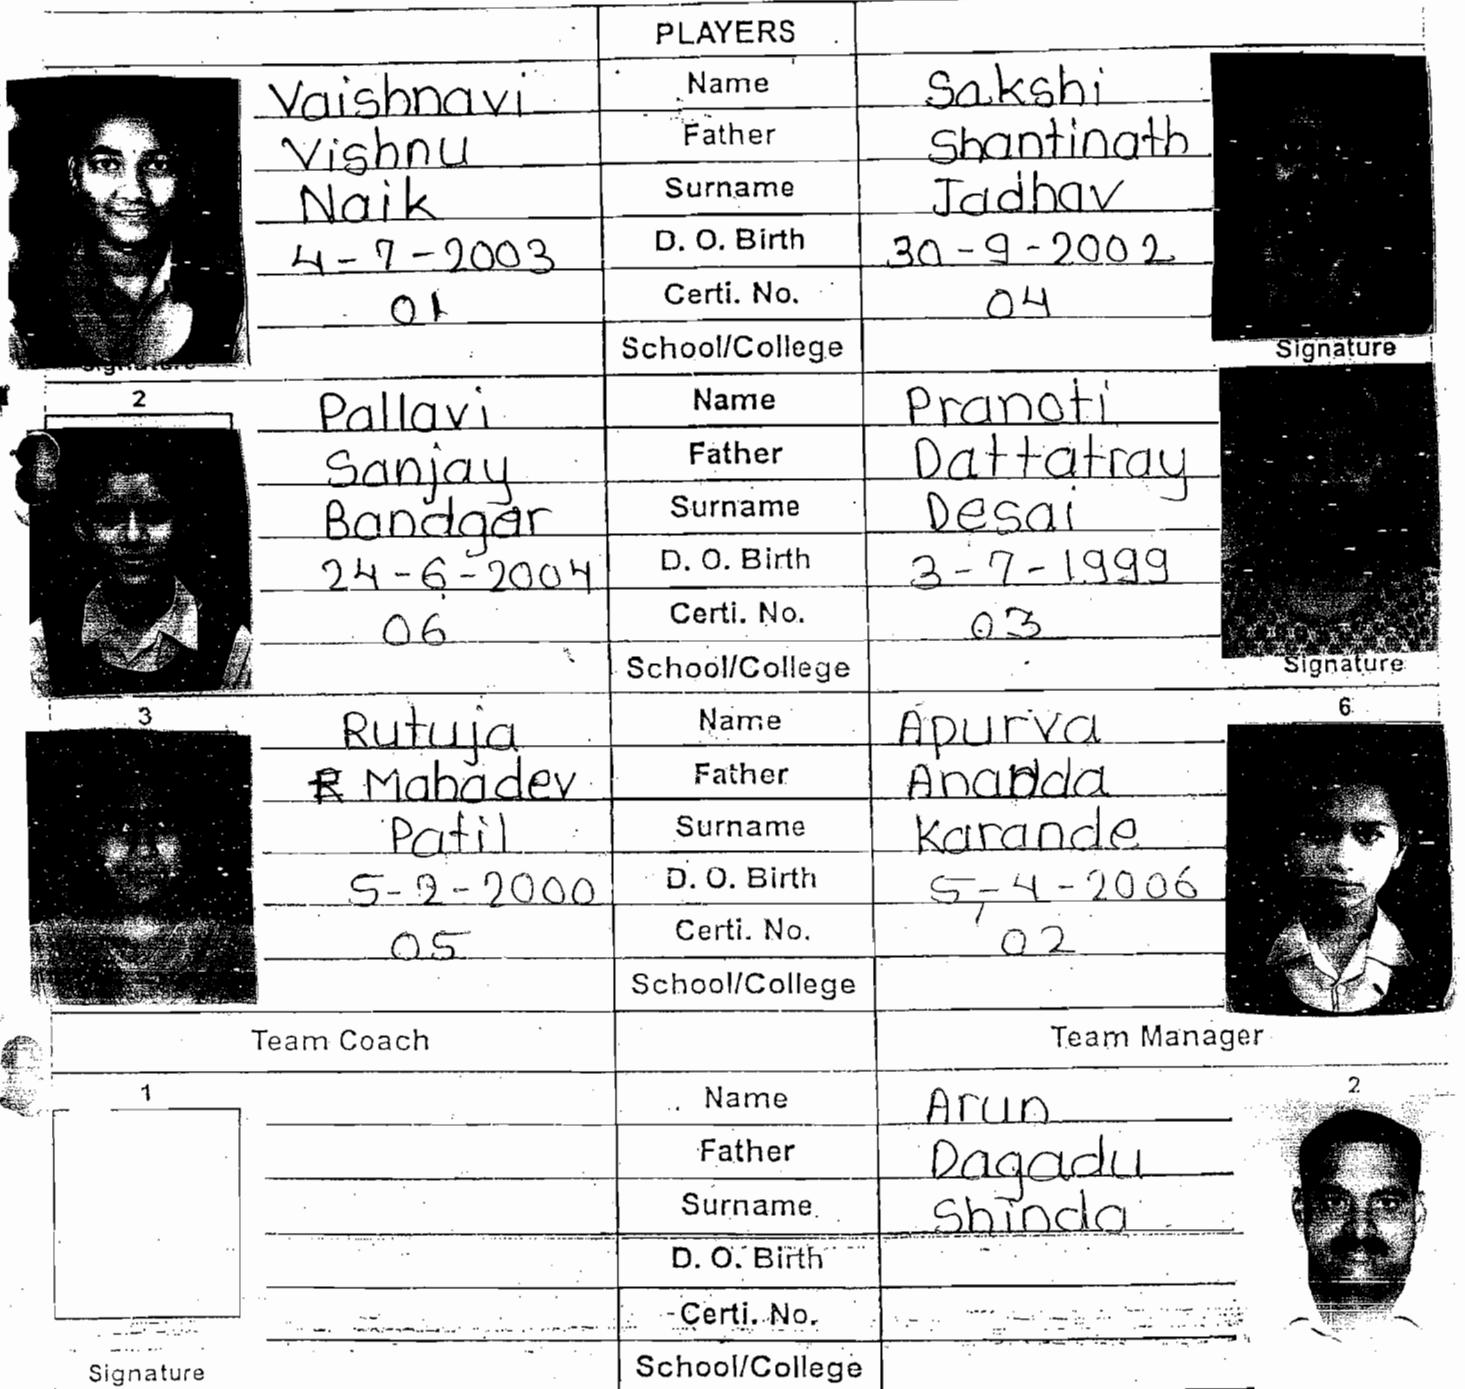 PLAYERS
Vaishnavi Name Sakshi
Vishnu Father Shantinath
Naik Surname Jadhav
4-7-2003 D. O. Birth 30-9-2002
01 Certi. No. 04
School/College
Signature Signature
2
Pallavi Name Pranoti
Sanjay Father Dattatray
Bandgar Surname Desai
24-6-2004 D. O. Birth 3-7-1999
06 Certi. No. 03
School/College
Signature
3 6
Rutuja Name Apurva
Mahadev Father Ananda
Patil Surname Karande
5-2-2000 D. O. Birth 5-4-2006
05 Certi. No. 02
School/College
Team Coach Team Manager
1 2
Name Arun
Father Dagadu
Surname Shinda
D. O. Birth
Certi. No.
School/College
Signature